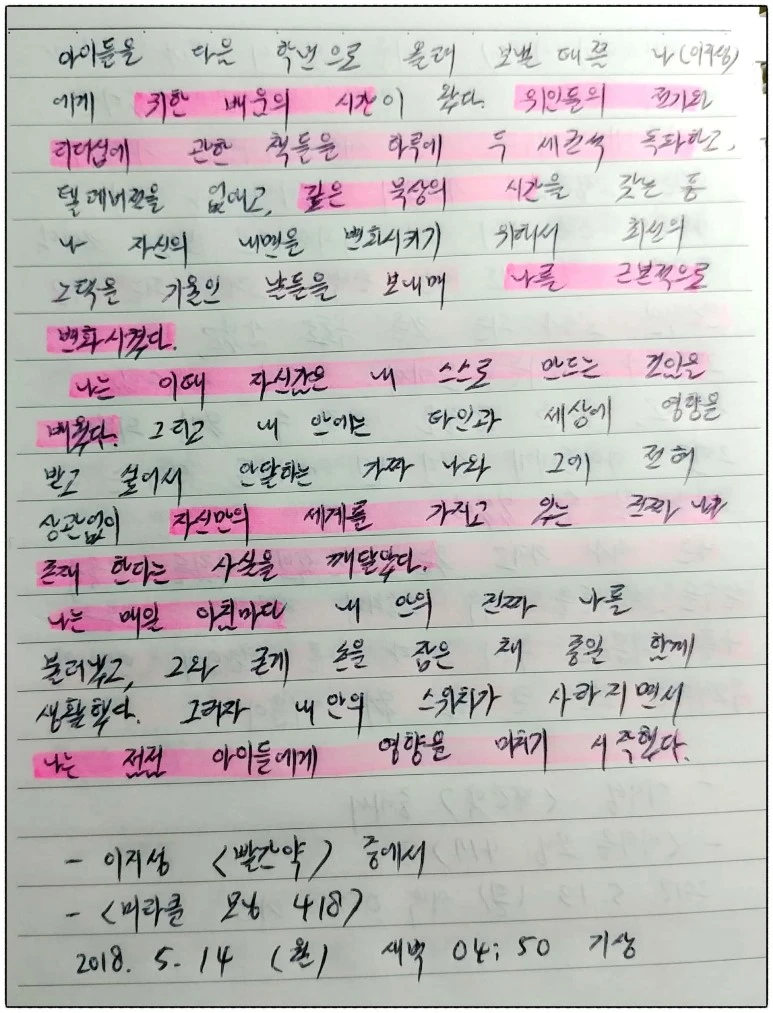 아이들을 다음 학년으로 올려 보낼 때쯤 나(이지성)
에게 귀한 배움의 시간이 왔다. 위인들의 전기와
리더십에 관한 책들을 하루에 두 세권씩 독파하고,
텔레비전을 없애고, 깊은 묵상의 시간을 갖는 등
나 자신의 내면을 변화시키기 위해서 최선의
노력을 기울인 날들을 보내며 나를 근본적으로
변화시켰다.
나는 이때 자신감은 내 스스로 만드는 것임을
배웠다. 그리고 내 안에는 타인과 세상에 영향을
받고 살아서 안달하는 가짜 나와 그에 전혀
상관없이 자신만의 세계를 가지고 있는 진짜 내가
존재 한다는 사실을 깨달았다.
나는 매일 아침마다 내 안의 진짜 나를
불러내고, 그와 굳게 손을 잡은 채 종일 함께
생활했다. 그러자 내 안의 스위치가 사라지면서
나는 점점 아이들에게 영향을 미치기 시작했다.
- 이지성 <빨간약> 중에서
- <미라클 모닝 418>
2018. 5. 14 (월) 새벽 04:50 기상